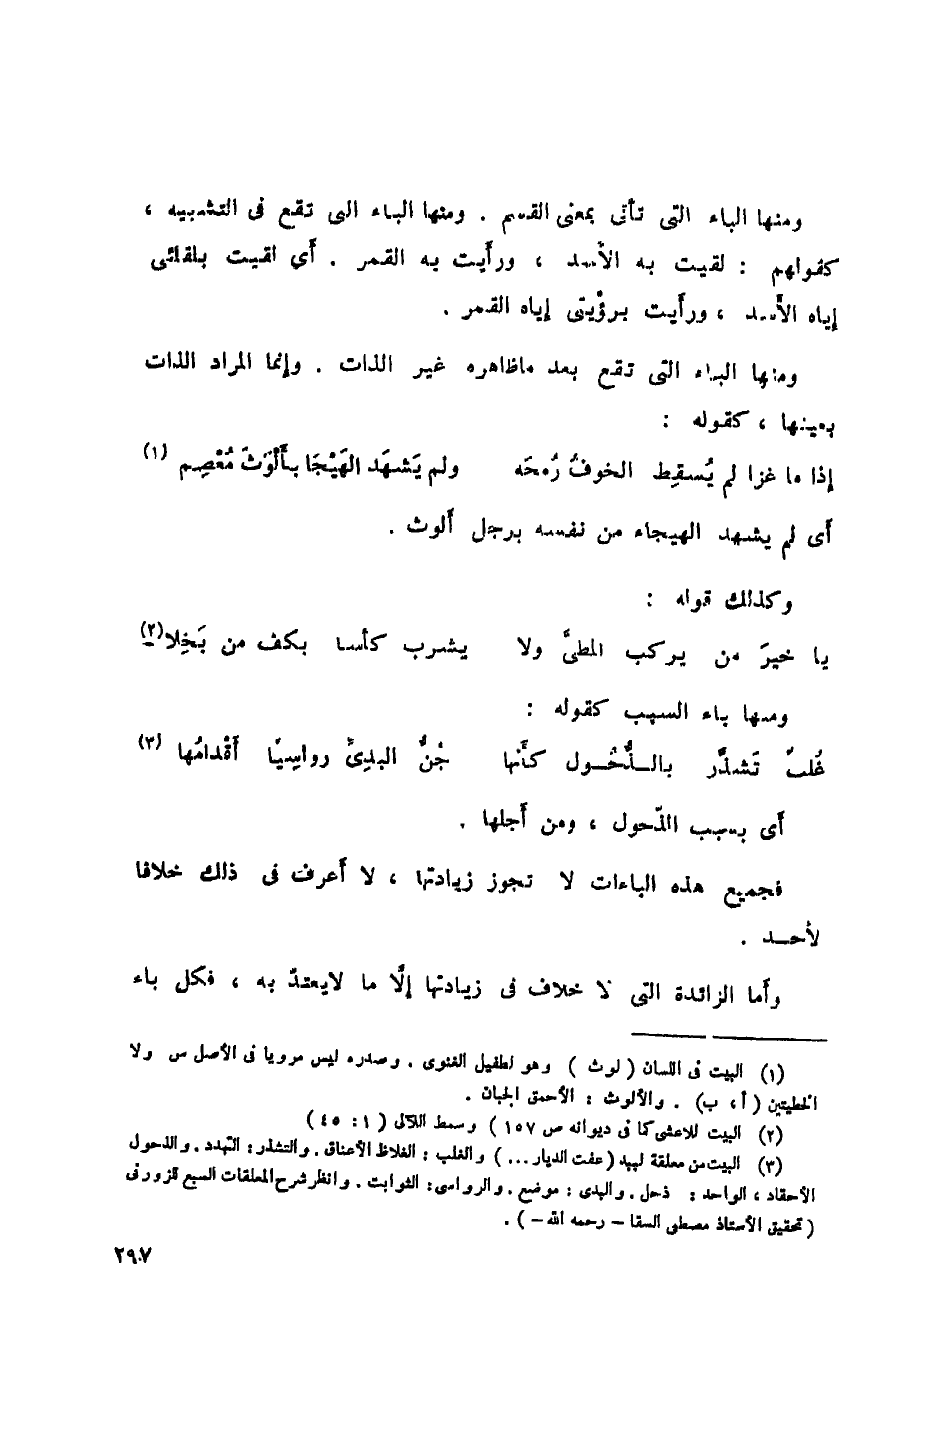 ومنها الباء التى تأتى بمعنى القسم . ومنها الباء التى تقع فى التشبيه ،
كقولهم : لقيت به الأسد ، ورأيت به القمر . أى لقيت بلقائى
إياه الأسد ، ورأيت برؤيتى إياه القمر .
ومنها الباء التى تقع بعد ماظاهره غير الذات . وإنما المراد الذات
بعينها ، كقوله :
إذا ما غزا لم يُسقِط الخوفُ رُمحَه ولم يَشهَد الهَيْجَا بأَلْوَثَ مُعْصِم (١)
أى لم يشهد الهيجاء من نفسه برجل ألوث .
وكذلك قوله :
يا خيرَ من يركب المطىَّ ولا يشرب كأسا بكف من بَخِلا (٢)
ومنها باء السبب كقوله :
غُلبٌ تَشذَّر بالـذُّحُـول كأنها جُنُّ البدِىِّ رواسِيًا أَقْدامُها (٣)
أى بسبب الذّحول ، ومن أجلها .
فجميع هذه الباءات لا تجوز زيادتها ، لا أعرف فى ذلك خلافا
لأحـد .
وأما الزائدة التى لا خلاف فى زيادتها إلَّا ما لايعتدّ به ، فكل باء
(١) البيت فى اللسان ( لوث ) وهو لطفيل الغنوى . وصدره ليس مرويا فى الأصل س ولا
الخطيتين ( أ ، ب ) . والألوث : الأحمق الجبان .
(٢) البيت للاعشى كما فى ديوانه ص ١٥٧ ) وسمط اللآلى ( ١ : ٤٥ )
(٣) البيت من معلقة لبيد ( عفت الديار ... ) والغلب : الغلاظ الأعناق . والتشذر : التهدد . والذحول
الأحقاد ، الواحد : ذحل . والبدى : موضع . والرواسى : الثوابت . وانظر شرح المعلقات السبع للزوزنى
( تحقيق الأستاذ مصطفى السقا – رحمه الله – ) .
٢٩٧